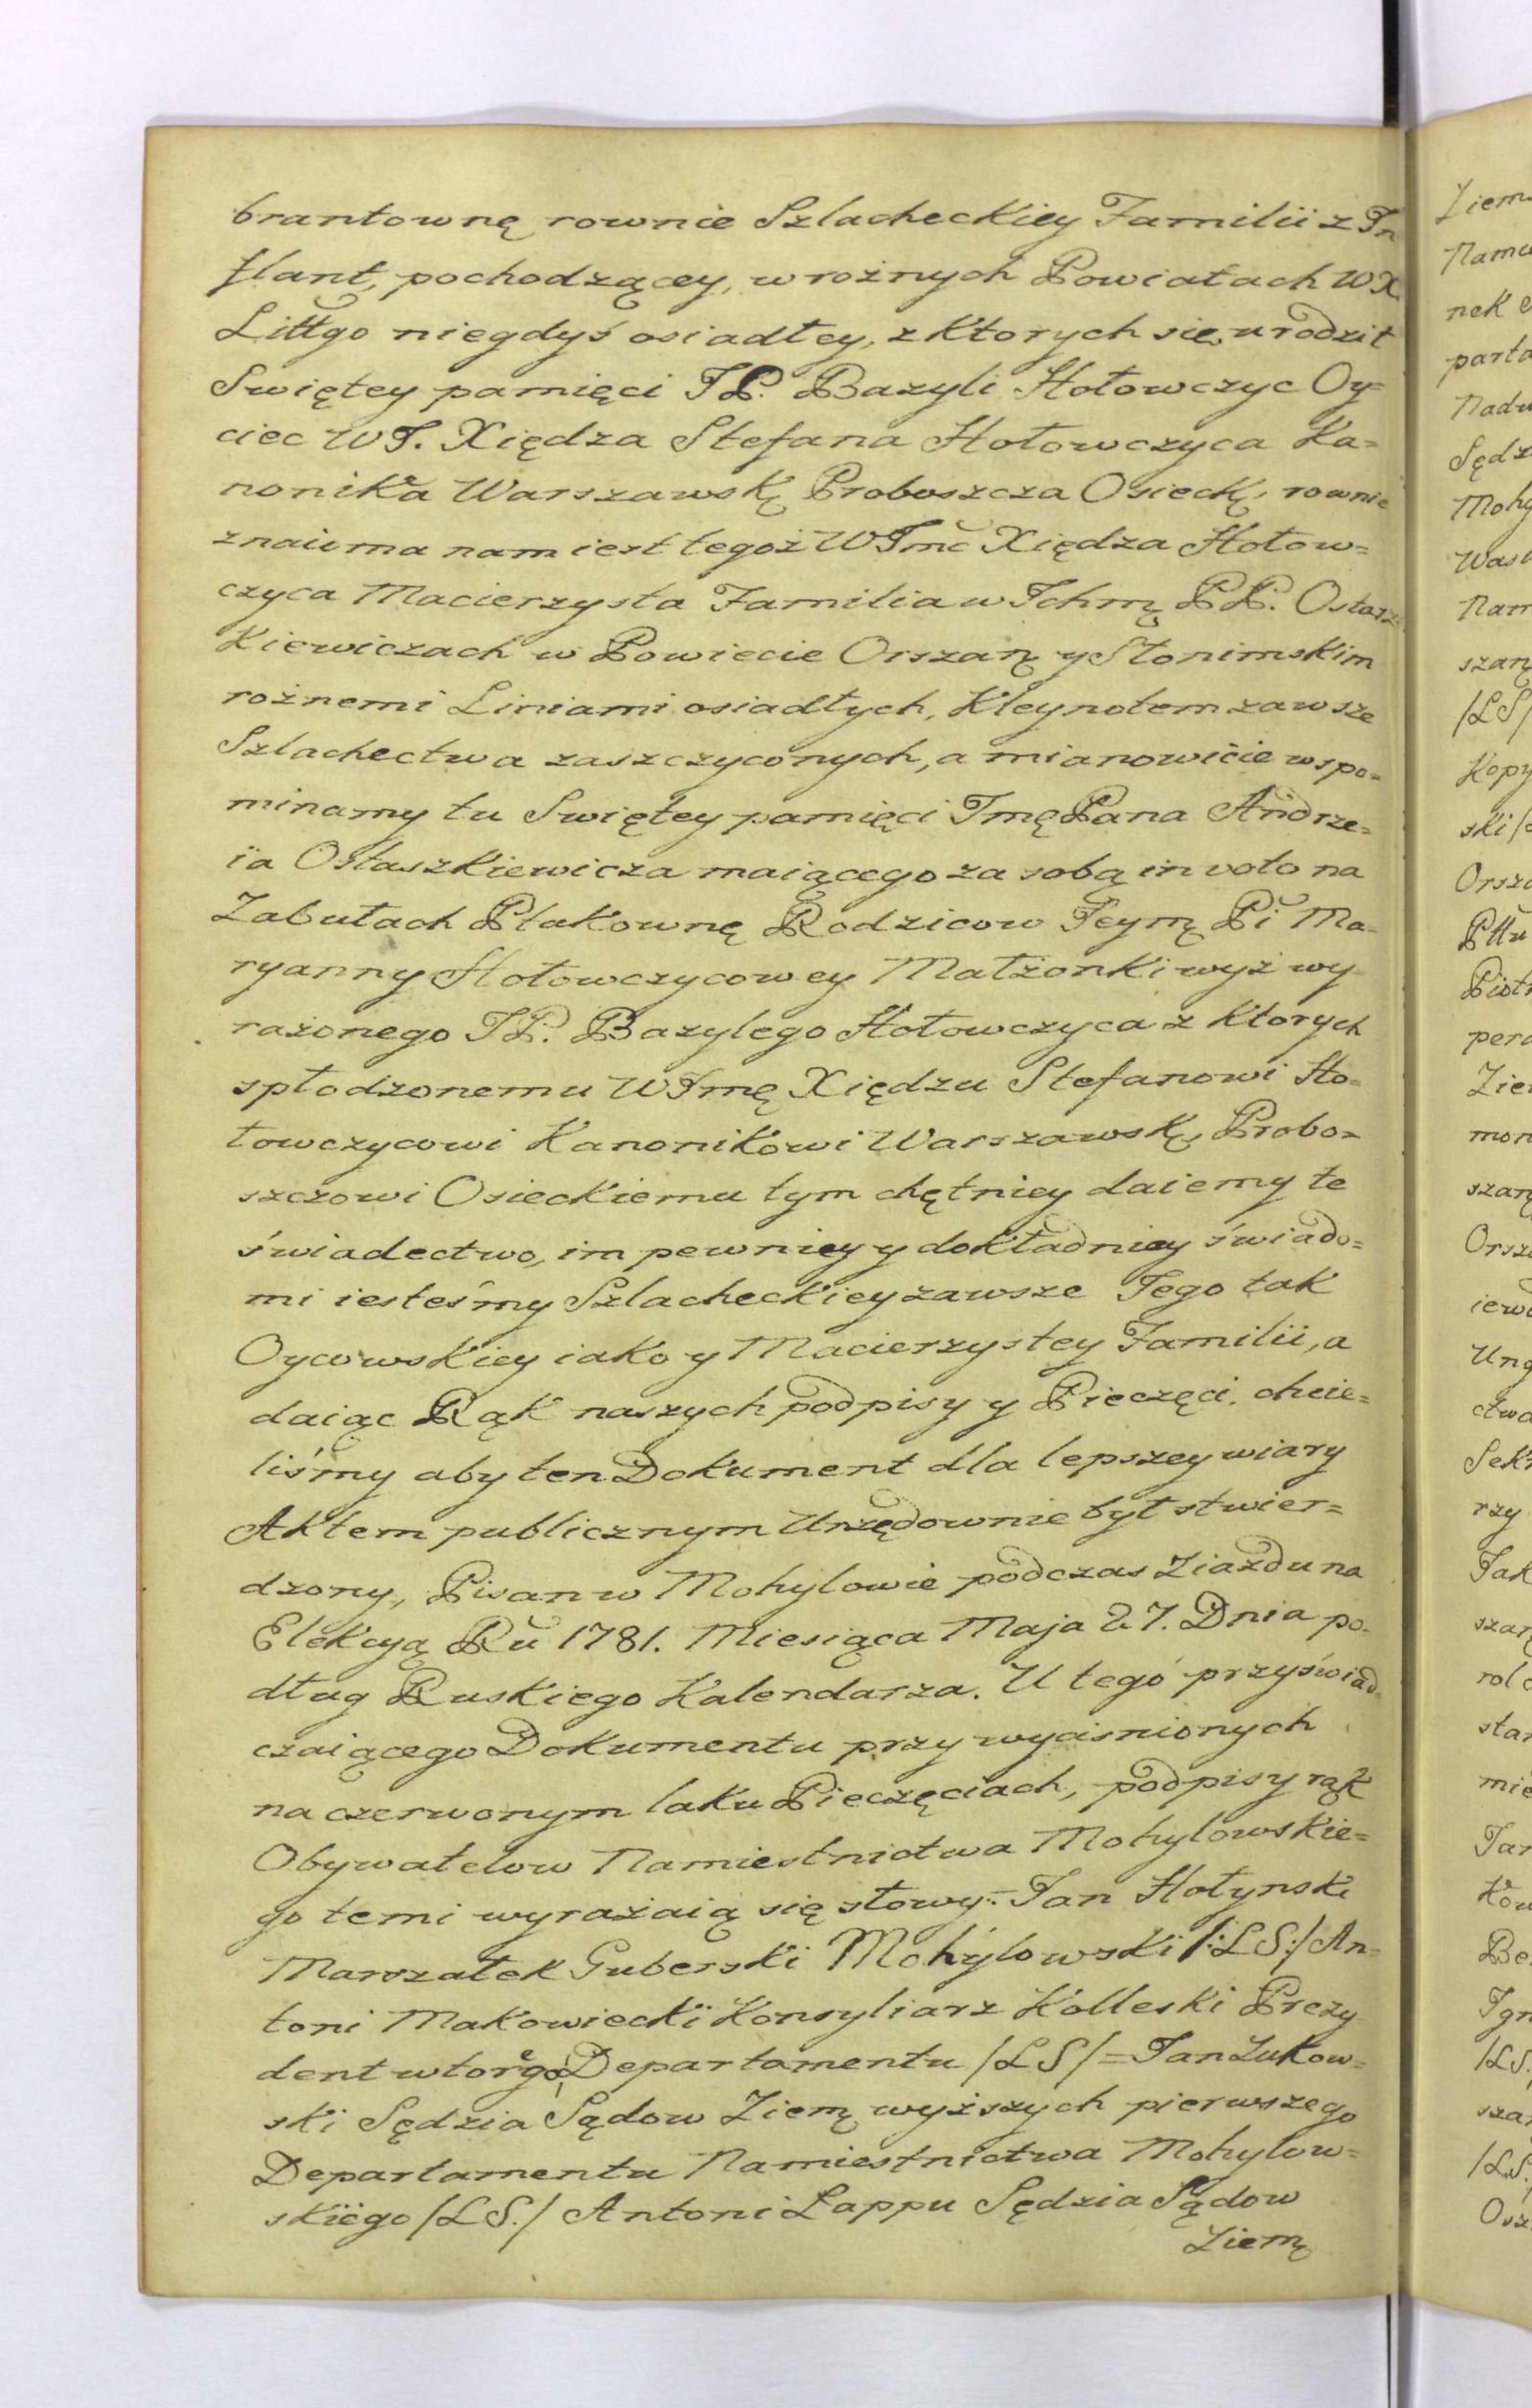 brantowną rownie Szlacheckiey Familii z In
flant, pochodzącey, w rożnych Powiatach WX
Littgo niegdyś osiadłey, z ktorych się urodził
Swiętey pamięci JP. Bazyli Hołowczyc Oy=
ciec WJ. Xiędza Stefana Hołowczyca Ka=
nonika Warszawsk. Proboszcza Osieck, rownie
znaiima nam iest tegoż WJmć Xiędza Hołow=
czyca Macierzysta Familia w Ichm PP. Ostasz
kiewiczach w Powiecie Orszan y Słonimskim
rożnemi Liniami osiadłych, Kleynotem zawsze
Szlachectwa zaszczyconych, a mianowicie wspo=
minamy tu Swiętey pamięci Jmę Pana Andrze=
ia Ostaszkiewicza maiącego za sobą in voto na
Zabułach Ptakownę Rodzicow Jeym Pi Ma=
ryanny Hołowczycowey Małżonki wyż wy
rażonego JP. Bazylego Hołowczyca z ktorych
spłodzonemu WJmę Xiędzu Stefanowi Ho=
łowczycowi Kanonikowi Warszawsk, Probo=
szczowi Osieckiemu tym chętniey daiemy te
świadectwo, im pewniey y dokładniey świado=
mi iesteśmy Szlacheckiey zawsze Jego tak
Oycowskiey iako y Macierzystey Familii, a
daiąc Rąk naszych podpisy y Pieczęci, chcie=
liśmy aby ten Dokument dla lepszey wiary
Aktem publicznym Urzędownie był stwier=
dzony, Pisan w Mohylowie podczas Ziazdu na
Elekcyą Ru 1781. Miesiąca Maja 27. Dnia po=
dług Ruskiego Kalendarza. U tego przyświad=
czaiącego Dokumentu przy wycisnionych
na czerwonym laku Pieczęciach, podpisy rąk
Obywatelow Namiestnictwa Mohylowskie=
go temi wyrażaią się słowy:= Jan Hołynski
Marszałek Guberski Mohylowski /:LS:/ An=
toni Makowiecki Konsyliarz Kolleski Prezy
dent wtorego Departamentu /LS/ = Jan Żukow=
ski Sędzia Sądow Ziem wyższych pierwszego
Departamentu Namiestnictwa Mohylow=
skiego /LS./ Antoni Łappu Sędzia Sądow
Ziem